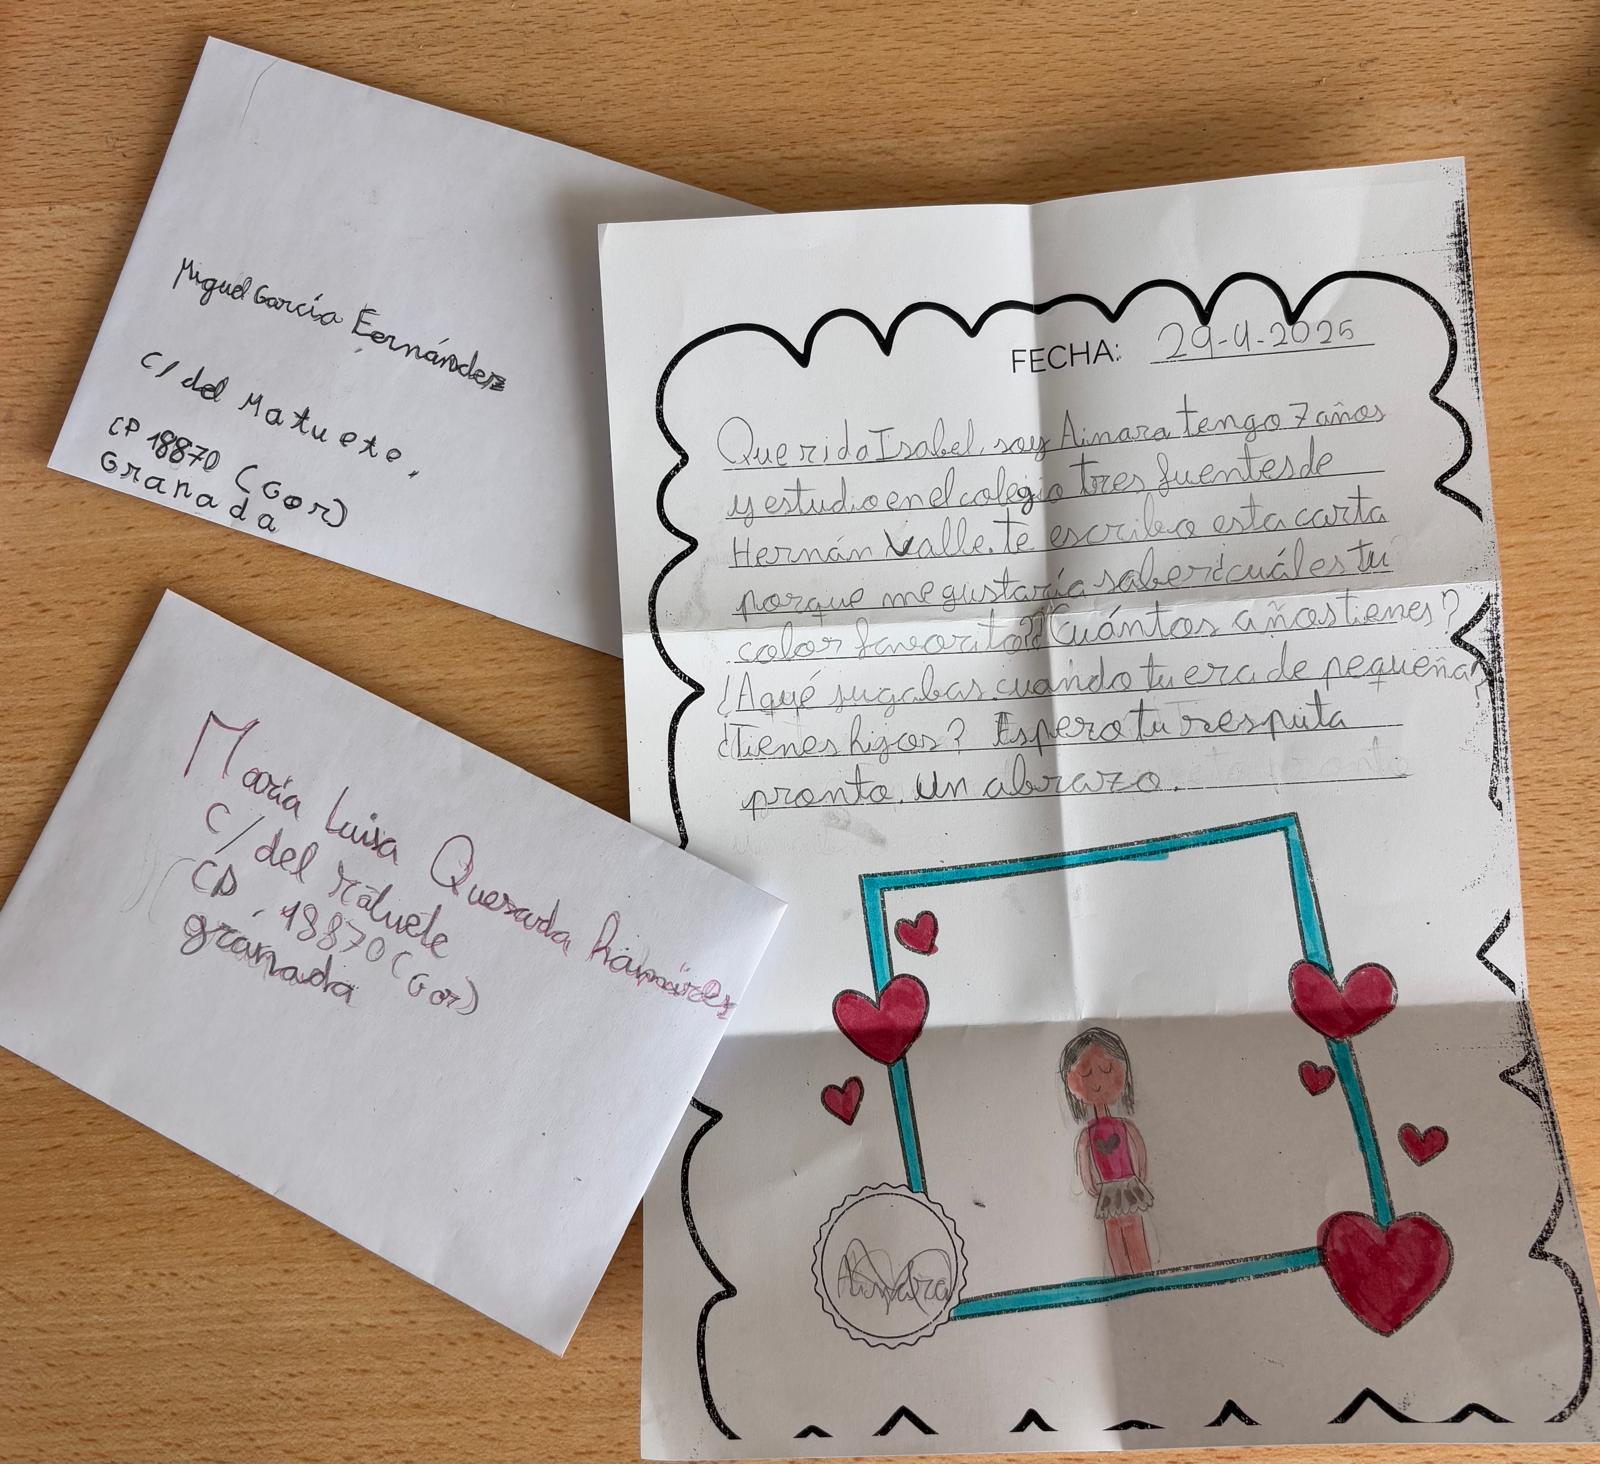 Miguel García Fernández
C/ del Matuete,
CP 18870 (Gor)
Granada
María Luisa Quesada Ramírez
C/ del Matuete
CP. 18870 (Gor)
granada
FECHA: 29-4-2025
Querida Isabel, soy Ainara tengo 7 años
y estudio en el colegio tres fuentes de
Hernán Valle. te escribo esta carta
porque me gustaría saber ¿cuál es tu
color favorito? ¿Cuántos años tienes?
¿A qué jugabas cuando tu era de pequeña?
¿Tienes higos? Espero tu resputa
pronto. un abrazo.
Ainara